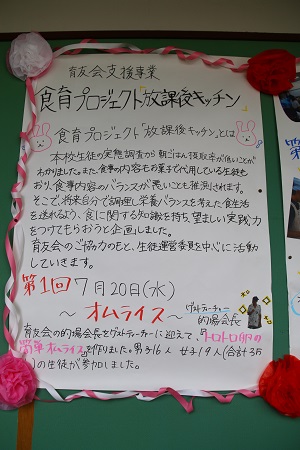 育友会支援事業
食育プロジェクト"放課後キッチン"
食育プロジェクト「放課後キッチン」とは
本校生徒の実態調査から朝ごはん摂取率が低いことが
わかりました。また、食事の内容もお菓子で代用している生徒も
おり、食事内容のバランスが悪いことも推測されます。
そこで、将来自分で調理し栄養バランスを考えた食生活
を送れるよう、食に関する知識を持ち、望ましい実践力
をつけてもらおうと企画しました。
育友会のご協力のもと、生徒運営委員を中心に活動
していきます。
第1回 7月20日(水)
～オムライス～
ゲストティーチャー
的場会長
育友会の的場会長をゲストティーチャーに迎えて、「トロトロ卵の
簡単オムライス」を作りました。男子16人 女子19人(合計35
人)の生徒が参加しました。